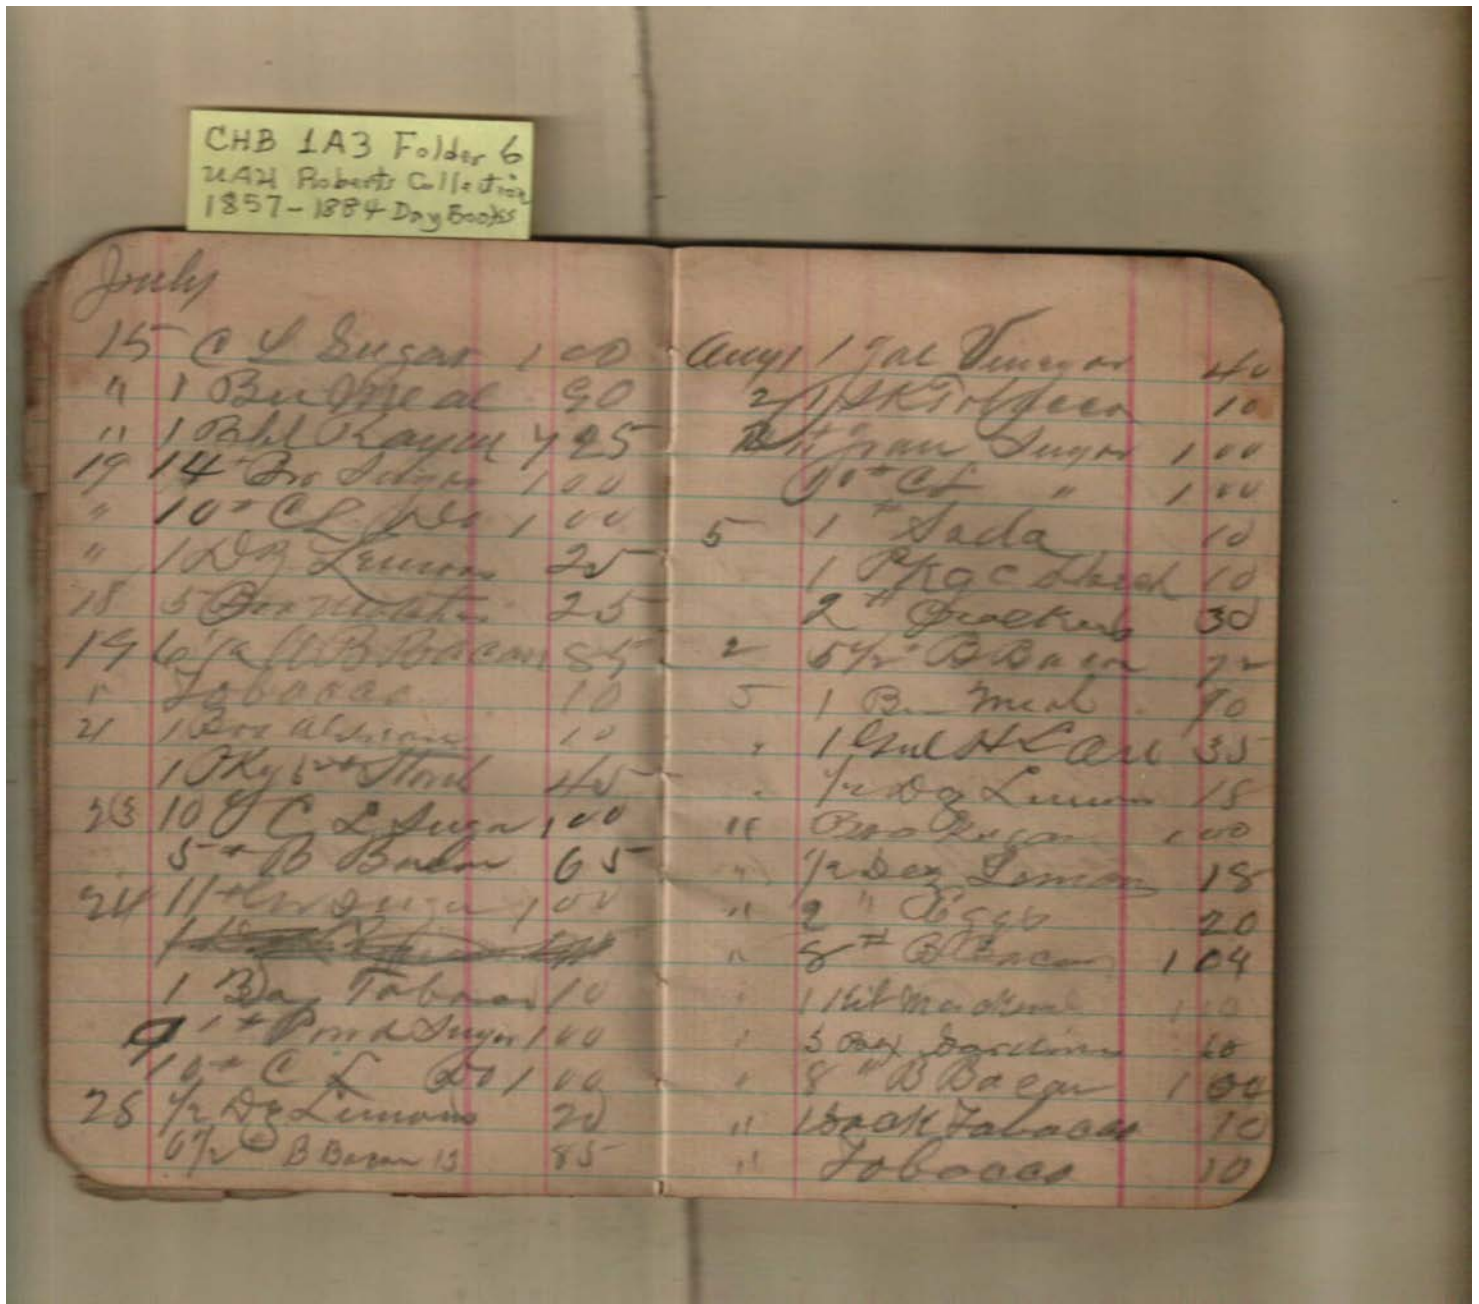 CHB 1A3 Folder 6
UAH Roberts Collection
1857-1884 Day Books
July
15 C L Sugar 1 00
" 1 Bu Meal 90
" 1 Bbl 7 25
19 14 Sugar 1 00
" 10# C L Do 1 00
" 1 Dz Lemons 25
18 5 25
19 6 1/2 B Bacon 85
" Tobacco 10
21 1 Box 10
1 Pkg 45
23 10 # C L Suga 1 00
5 # B Bacon 65
24 11 # Suga 1 00
1 Bag Tobacco 10
1 # Sugar 1 00
10 # C L Do 1 00
28 1/2 Dz Lemons 20
6 1/2 # B Bacon 13 85
Aug 1 1 Gal Vinegar 40
2 1 SK Tobacco 10
Gran Sugar 1 00
10 # CL " 1 00
5 1 # Soda 10
1 Pkg C Starch 10
2 # Crackers 30
2 5 1/2 # B Bacon 72
5 1 Bu Meal 90
" 1 Gal H L Oil 35
" 1/2 Dz Lemons 18
" 1 00
" 1/2 Doz Lemons 18
" 2 " Eggs 20
" 8 # B Bacon 1 04
" 1 Kit
" 3 Box Sardines
" 8 # B Bacon 1 04
" 1 Sack Tobacco 10
" Tobacco 10